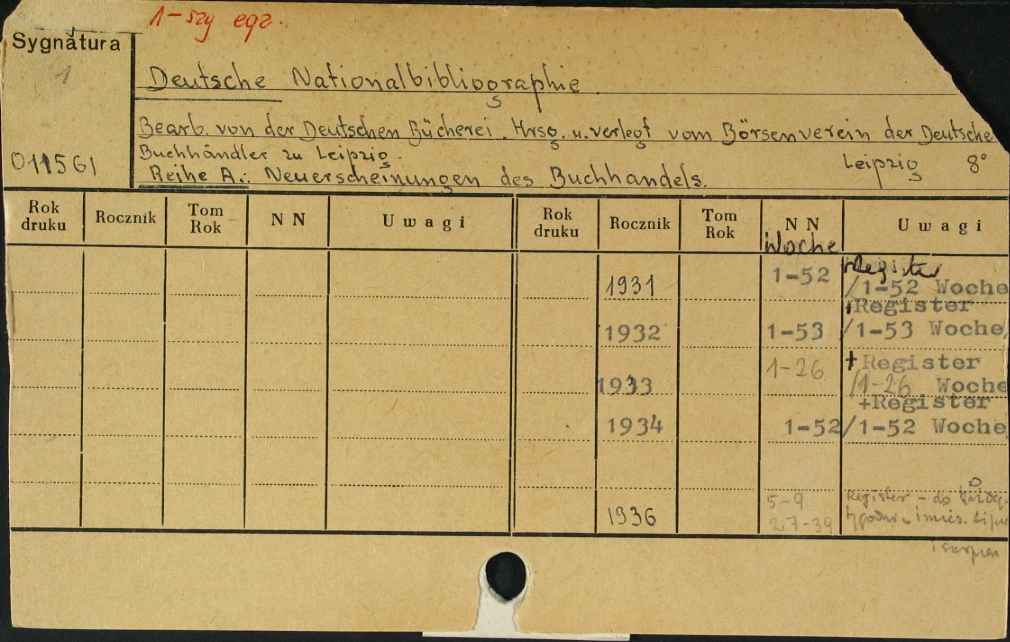 1-szy egz.
Sygnatura
1
Deutsche Nationalbibliographie
Bearb. von der Deutschen Bücherei. Hrsg. u. verlegt vom Börsenverein der Deutsche
Buchhändler zu Leipzig. Leipzig 8°
011561
Reihe A.: Neuerscheinungen des Buchhandels.
Rok druku Rocznik Tom Rok NN Uwagi Rok druku Rocznik Tom Rok NN Uwagi
Woche Register
1931 1-52 /1-52 Woche
+Register
1932 1-53 /1-53 Woche/
+Register
1933 1-26 /1-26 Woche
+Register
1934 1-52 /1-52 Woche
1936 5-9 Register - do
27-39 i mies.
i sierpien